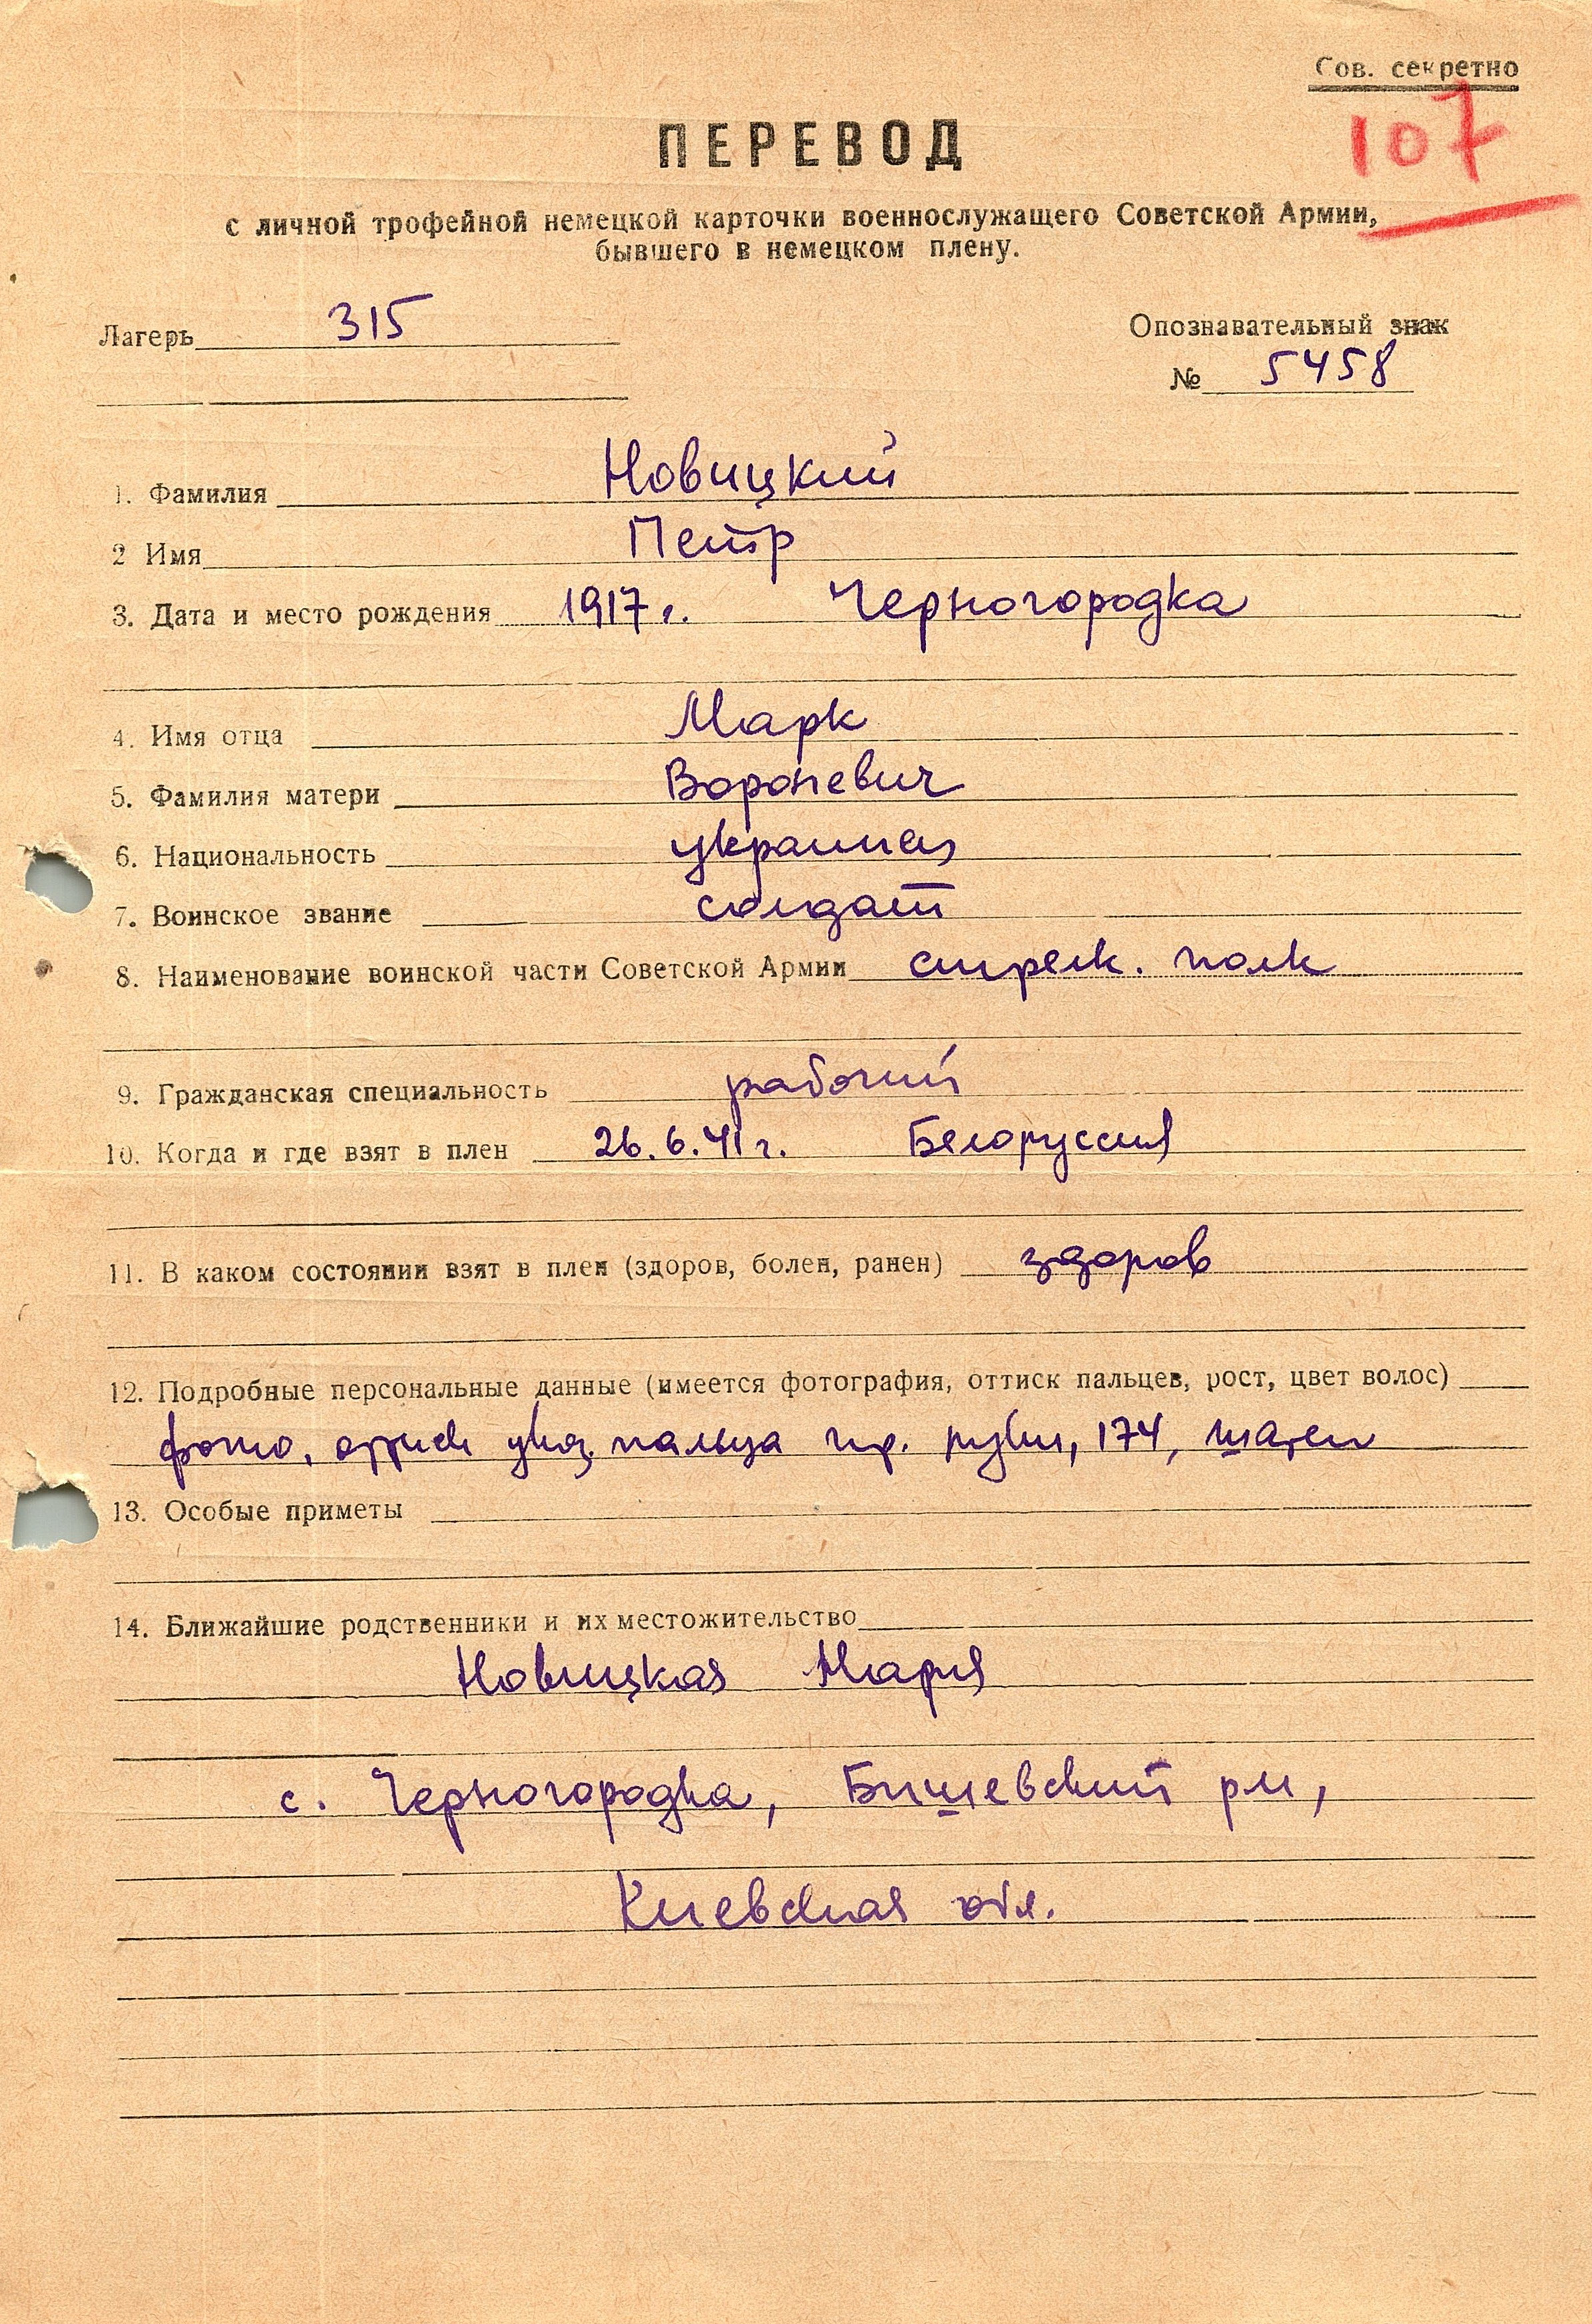 Сов. секретно
107
ПЕРЕВОД
с личной трофейной немецкой карточки военнослужащего Советской Армии,
бывшего в немецком плену.
Лагерь 315
Опознавательный знак
№ 5458
1. Фамилия Новицкий
2 Имя Петр
3. Дата и место рождения 1917 г. Черногородка
4. Имя отца Марк
5. Фамилия матери Вороневич
6. Национальность украинец
7. Воинское звание солдат
8. Наименование воинской части Советской Армии стрелк. полк
9. Гражданская специальность рабочий
10. Когда и где взят в плен 26.6.41 г. Белоруссия
11. В каком состоянии взят в плен (здоров, болен, ранен) здоров
12. Подробные персональные данные (имеется фотография, оттиск пальцев, рост, цвет волос)
фото, оттиск указ. пальца пр. руки, 174, шатен
13. Особые приметы
14. Ближайшие родственники и их местожительство
Новицкая Мария
с. Черногородка, Бишевский р-н,
Киевская обл.